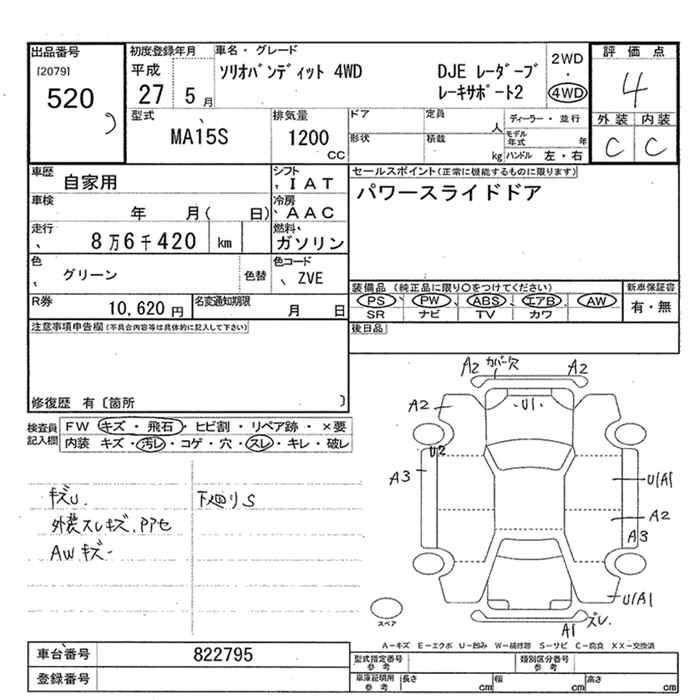 出品番号
[2079]
520
初度登録年月
平成
27 5 月
車名・グレード
ソリオバンディット 4WD
DJE レーダーブ
レーキサポート2
2WD
・
4WD
評価点
4
外装 内装
C C
型式
MA15S
排気量
1200
CC
ドア
形状
定員
人
積載
kg
ディーラー・並行
モデル
年式 年
ハンドル 左・右
車歴
自家用
シフト
IAT
セールスポイント(正常に機能するものに限ります)
パワースライドドア
車検
年 月( 日)
冷房
AAC
走行
8万6千420 km
燃料
ガソリン
色
グリーン
色替
色コード
ZVE
装備品 (純正品に限り○をつけてください)
PS PW ABS エアB AW
SR ナビ TV カワ
新車保証書
有・無
R券
10,620 円
名変通知期限
月 日
後日品
注意事項申告欄(不具合内容等は具体的に記入して下さい)
修復歴 有〔箇所 〕
検査員
記入欄
FW キズ・飛石・ヒビ割・リペア跡・×要
内装 キズ・汚レ・コゲ・穴・スレ・キレ・破レ
キズU.
外装スレキズ.PP セ
AWキズー
下廻りS
A2 カバー欠 A2
A2
U1
U2
A3
U1A1
A2
A3
U1A1
A1 ズレ.
スペア
A−キズ E−エクボ U−凹み W−補修跡 S−サビ C−腐食 XX−交換済
車台番号
822795
登録番号
型式指定番号
参考
類別区分番号
参考
車庫証明用
参考
長さ
cm
幅
cm
高さ
cm